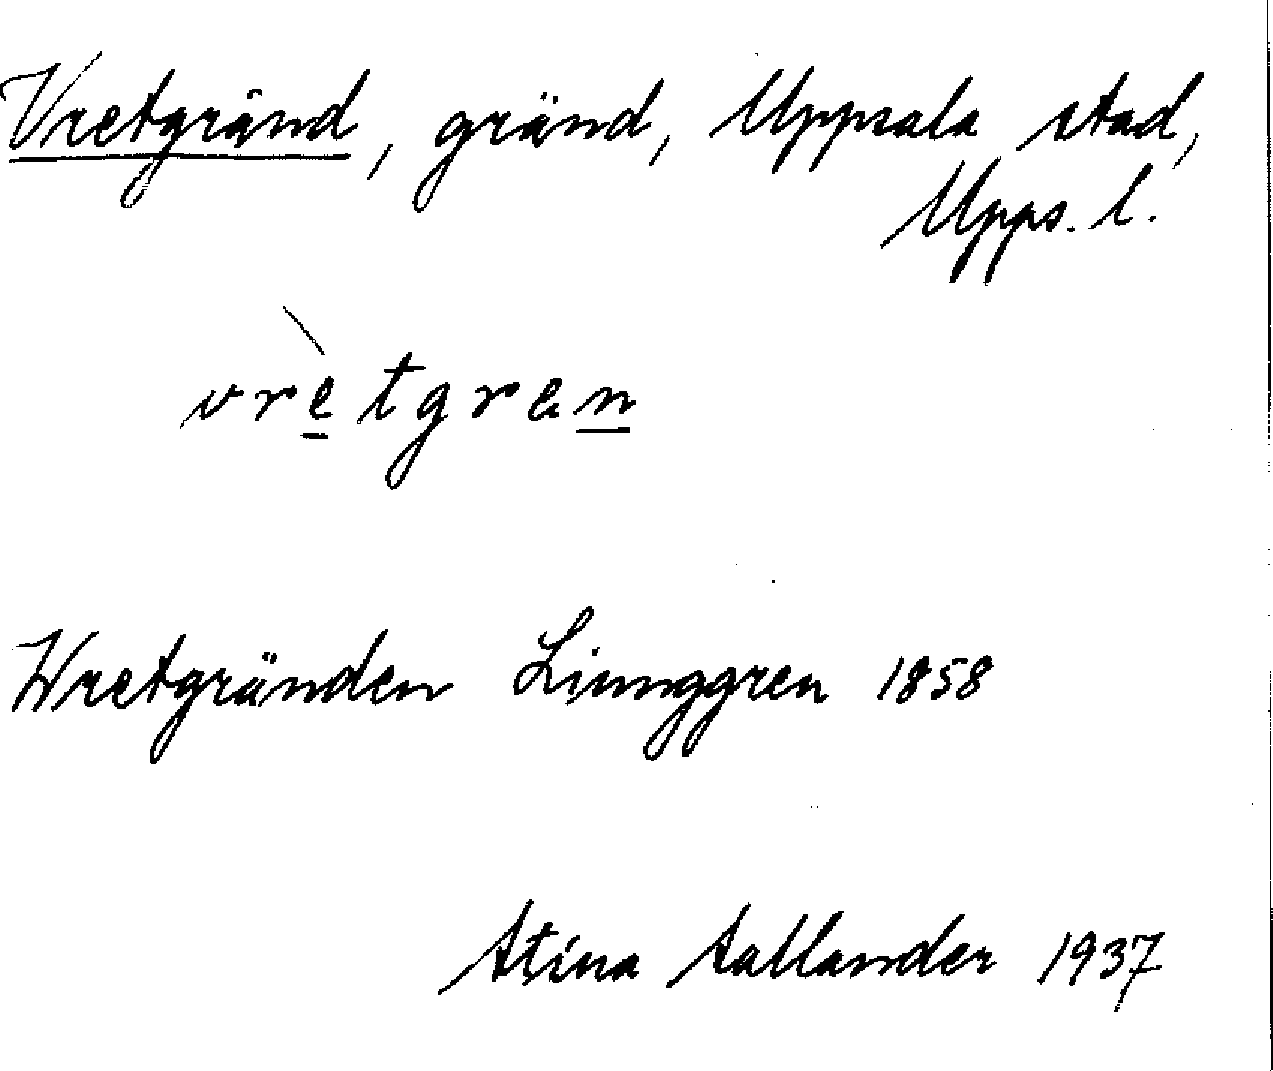 Vretgränd, gränd, Uppsala stad,
Upps. l.
vrètgren
Wretgränden Ljunggren 1858
Stina Sallander 1937